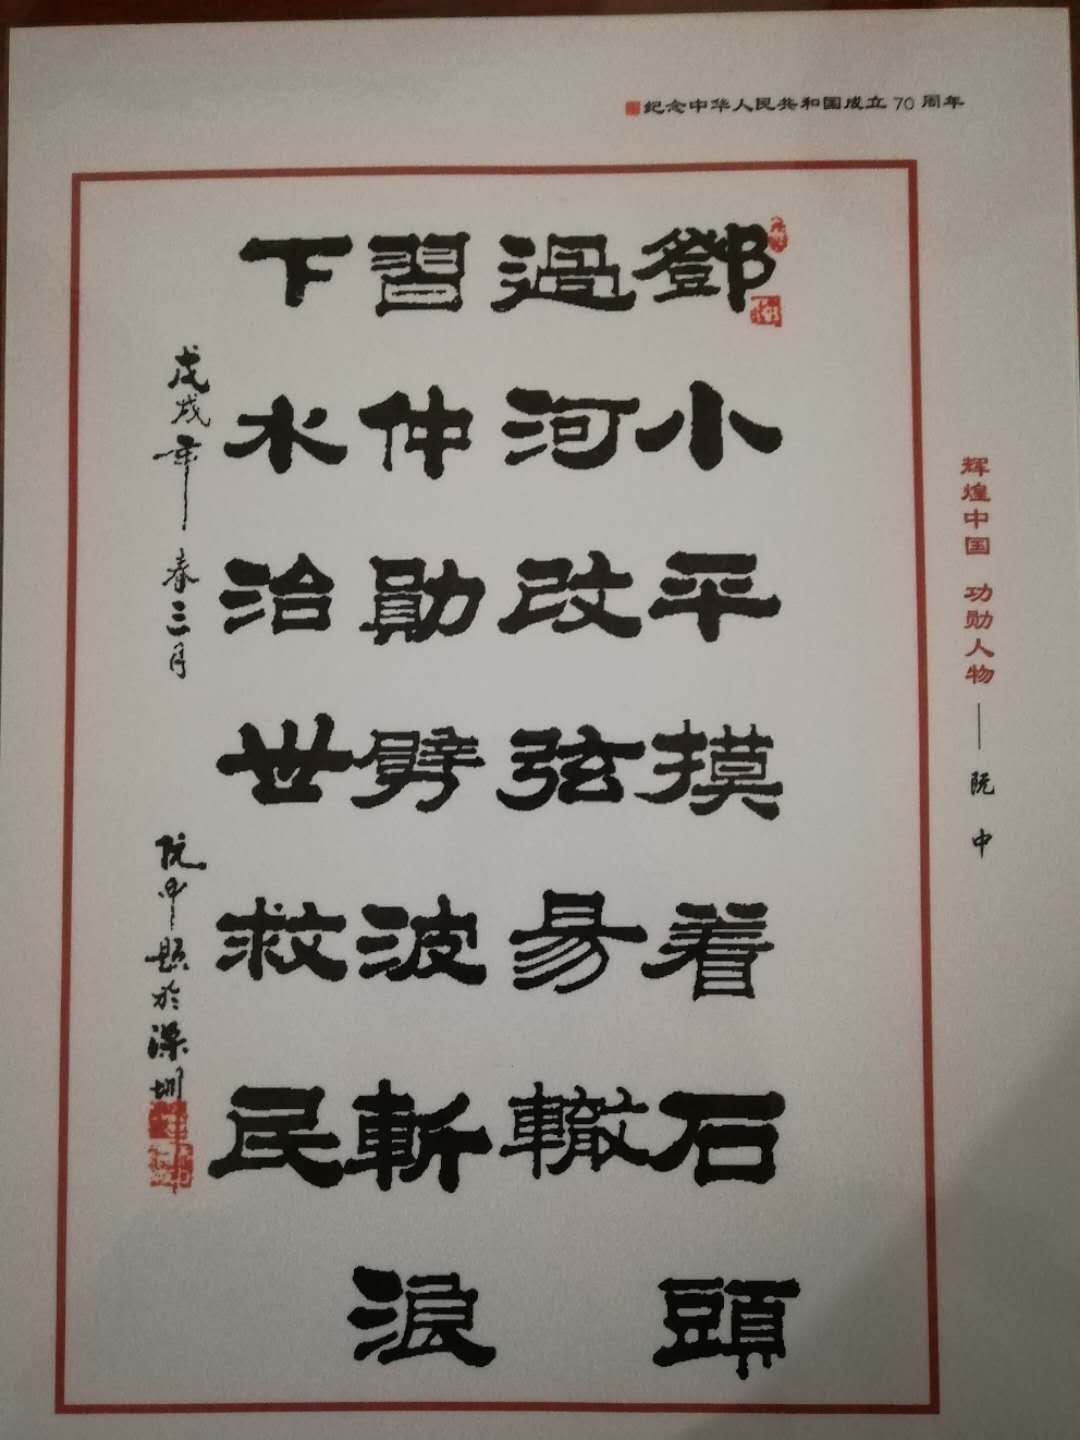 纪念中华人民共和国成立70周年
鄧小平摸着石頭
過河改弦易轍
習仲勛劈波斬浪
下水治世救民
戊戌年春三月
阮中題於深圳
辉煌中国 功勋人物——阮中